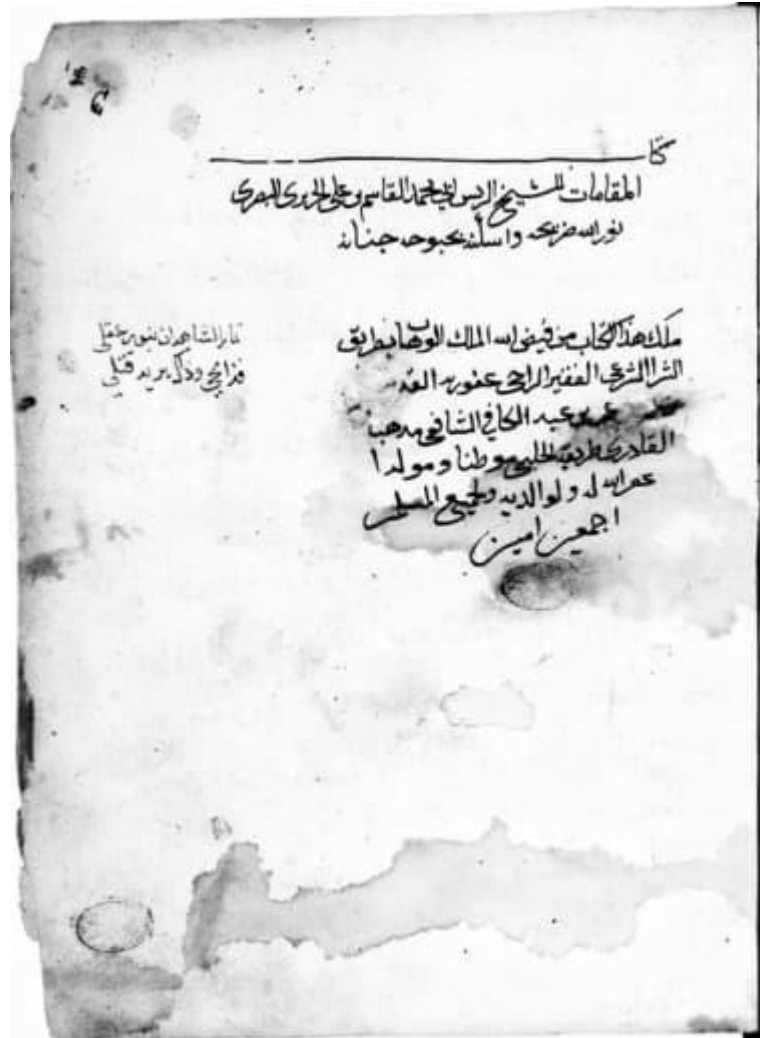 كتا
المقامات للشيخ الريس ابي محمد القاسم بن علي الحريري البصري
نور الله ضريحه واسكنه بحبوحه جنانه
ملك هذا الكتاب من فيض الله الملك الوهاب بطريق
الشرا الشرعي الفقير الراجي عفو ربه القدير
عمر بن عبد الكافي الشافعي مذهبا
القادري طريقة الحلبي موطنا ومولدا
غفر الله له ولوالديه ولجميع المسلمين
اجمعين امين
وذاك يريد قتلي